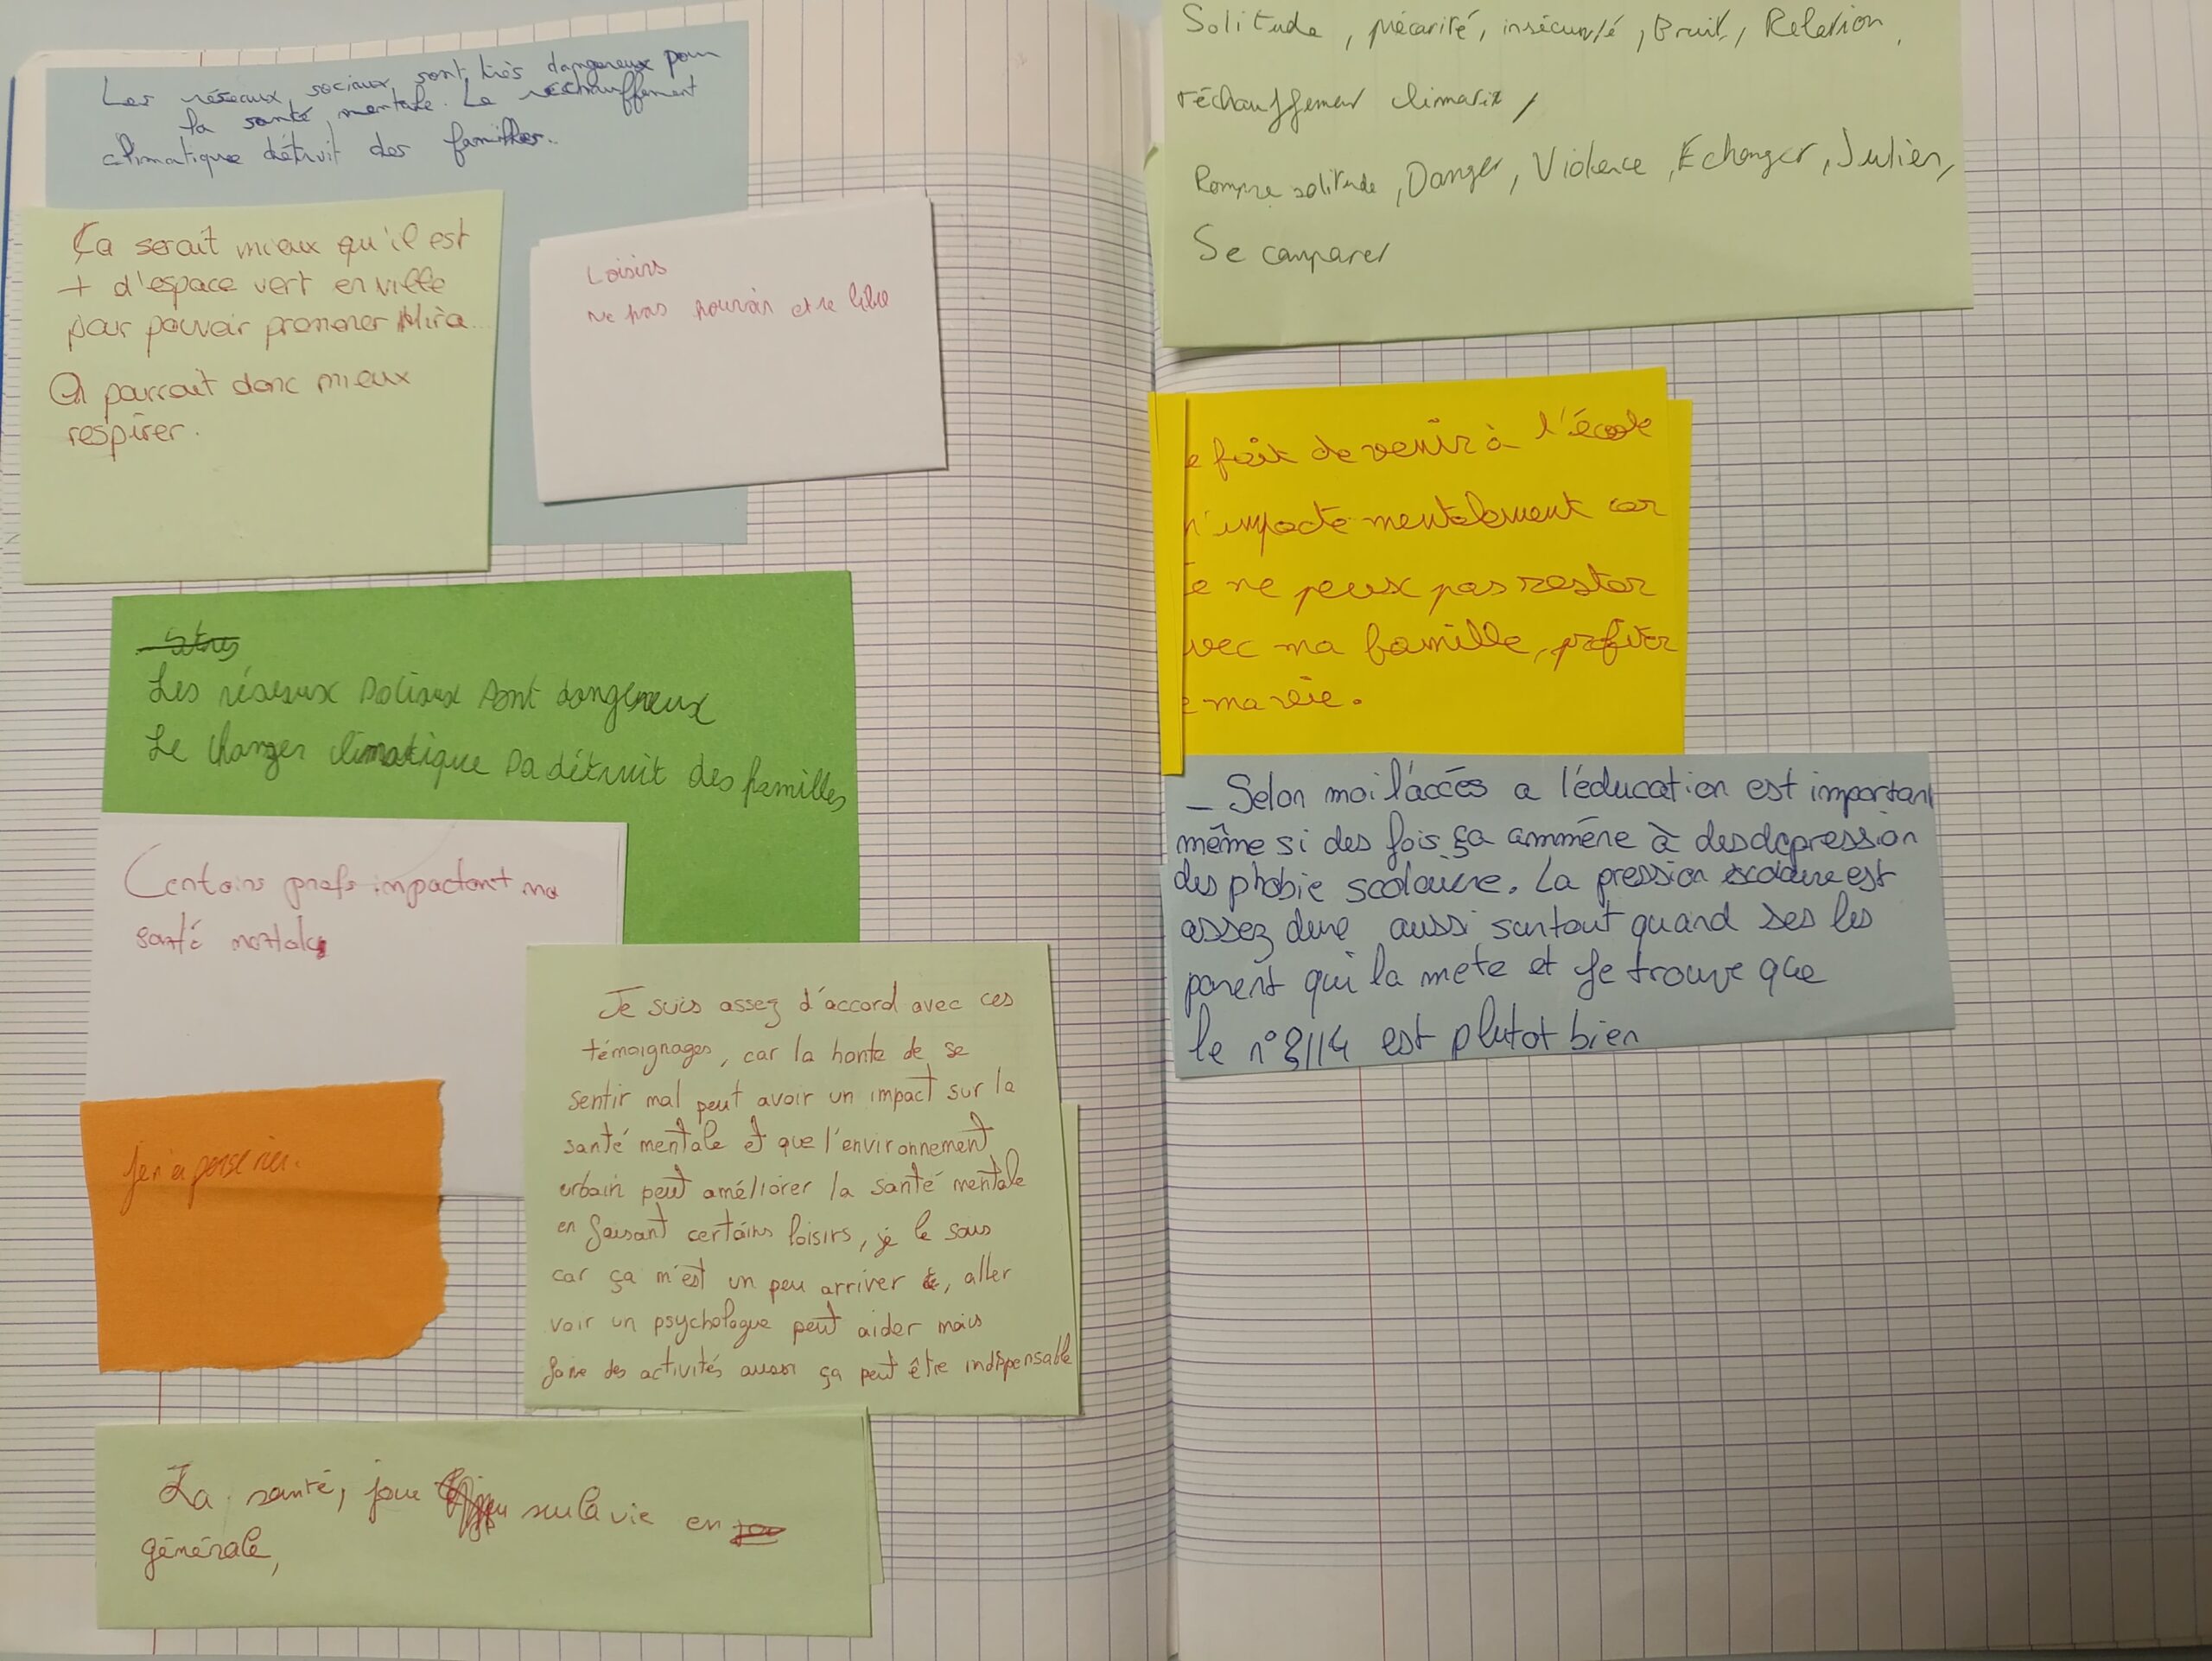 Les réseaux sociaux sont très dangereux pour
la santé mentale. Le réchauffement
climatique détruit des familles.
Ça serait mieux qu'il est
+ d'espace vert en ville
pour pouvoir promener
On pourrait donc mieux
respirer.
Loisirs
Ne pas pouvoir etre libre
Les réseaux sociaux sont dangereux
Le changer climatique sa détruit des familles
Certains profs impactent ma
santé mentale
Je n'ai pensé rien.
Je suis assez d'accord avec ces
témoignages, car la honte de se
sentir mal peut avoir un impact sur la
santé mentale et que l'environnement
urbain peut améliorer la santé mentale
en faisant certains loisirs, je le sais
car ça m'est un peu arriver, aller
voir un psychologue peut aider mais
faire des activités aussi ça peut être indispensable
La santé, joue sur la vie en
générale,
Solitude, précarité, insécurité, Bruit, Relation,
réchauffement climatix,
Rompre solitude, Danger, Violence, Echanger, Julien,
Se comparer
e fait de venir à l'école
m'impacte mentalement car
e ne peux pas rester
vec ma famille, profiter
e ma vie.
- Selon moi l'accès a l'éducation est important
même si des fois ça ammène à des depression
des phobie scolaire. La pression scolaire est
assez dure aussi surtout quand ses les
parent qui la mete et je trouve que
le n° est plutot bien